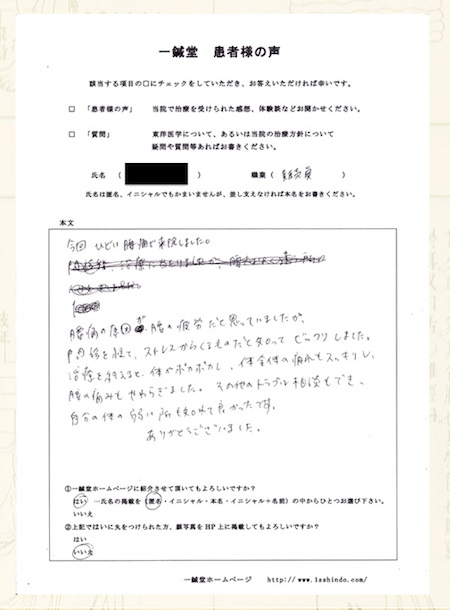 一鍼堂 患者様の声
該当する項目の□にチェックをしていただき、お答えいただければ幸いです。
□ 「患者様の声」 当院で治療を受けられた感想、体験談などお聞かせください。
□ 「質問」 東洋医学について、あるいは当院の治療方針について
疑問や質問等あればお書きください。
氏名 ( ) 職業 ( )
氏名は匿名、イニシャルでもかまいませんが、差し支えなければ本名をお書きください。
本文
今回 ひどい腰痛で来院しました。
腰痛の原因が、腰の疲労だと思っていましたが、
問診を経て、ストレスからくるものだと知ってビックリしました。
治療を終えると、体がポカポカし、体全体の疲れもスッキリし、
腰の痛みもやわらぎました。その他のトラブル相談もでき、
自分の体の弱い所も知れて良かったです。
ありがとうございました。
①一鍼堂ホームページに紹介させて頂いてもよろしいですか?
はい ―氏名の掲載を(匿名・イニシャル・本名・イニシャル+名前)の中からひとつお選び下さい。
いいえ
②上記ではいに丸をつけられた方、顔写真をHP上に掲載してもよろしいですか?
はい
いいえ
一鍼堂ホームページ http://www.1sshindo.com/